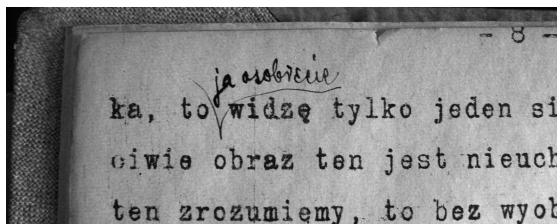 - 8 -
ja osobiście
ka, to widzę tylko jeden si
ciwie obraz ten jest nieuch
ten zrozumiemy, to bez wyob